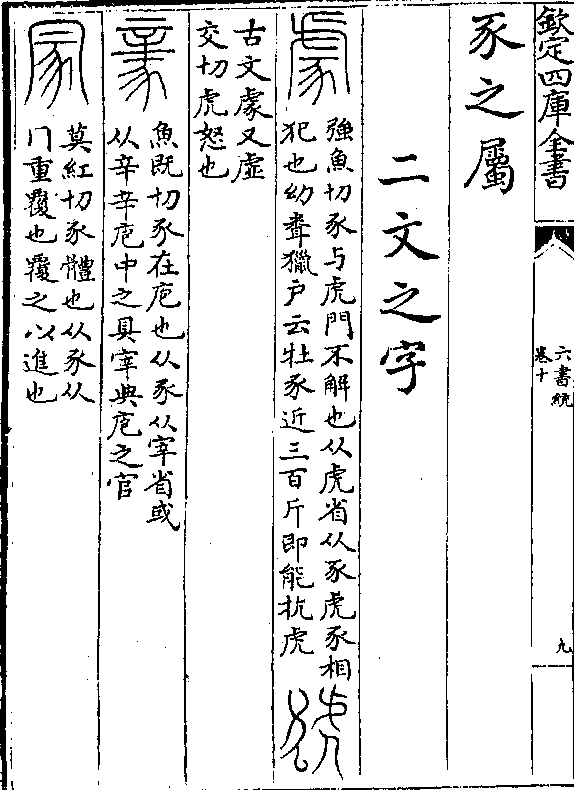 欽定四庫全書
六書統
卷十
九
豕之屬
二文之字
豦
強魚切豕与虎鬥不解也从虎省从豕虎豕相
犯也幼聋獵户云牡豕近三百斤即能抗虎
古文豦又虚
交切虎怒也
魚既切豕在庖也从豕从宰省或
从辛辛庖中之具宰典庖之官
冡
莫紅切豕體也从豕从
冂重覆也覆之以進也